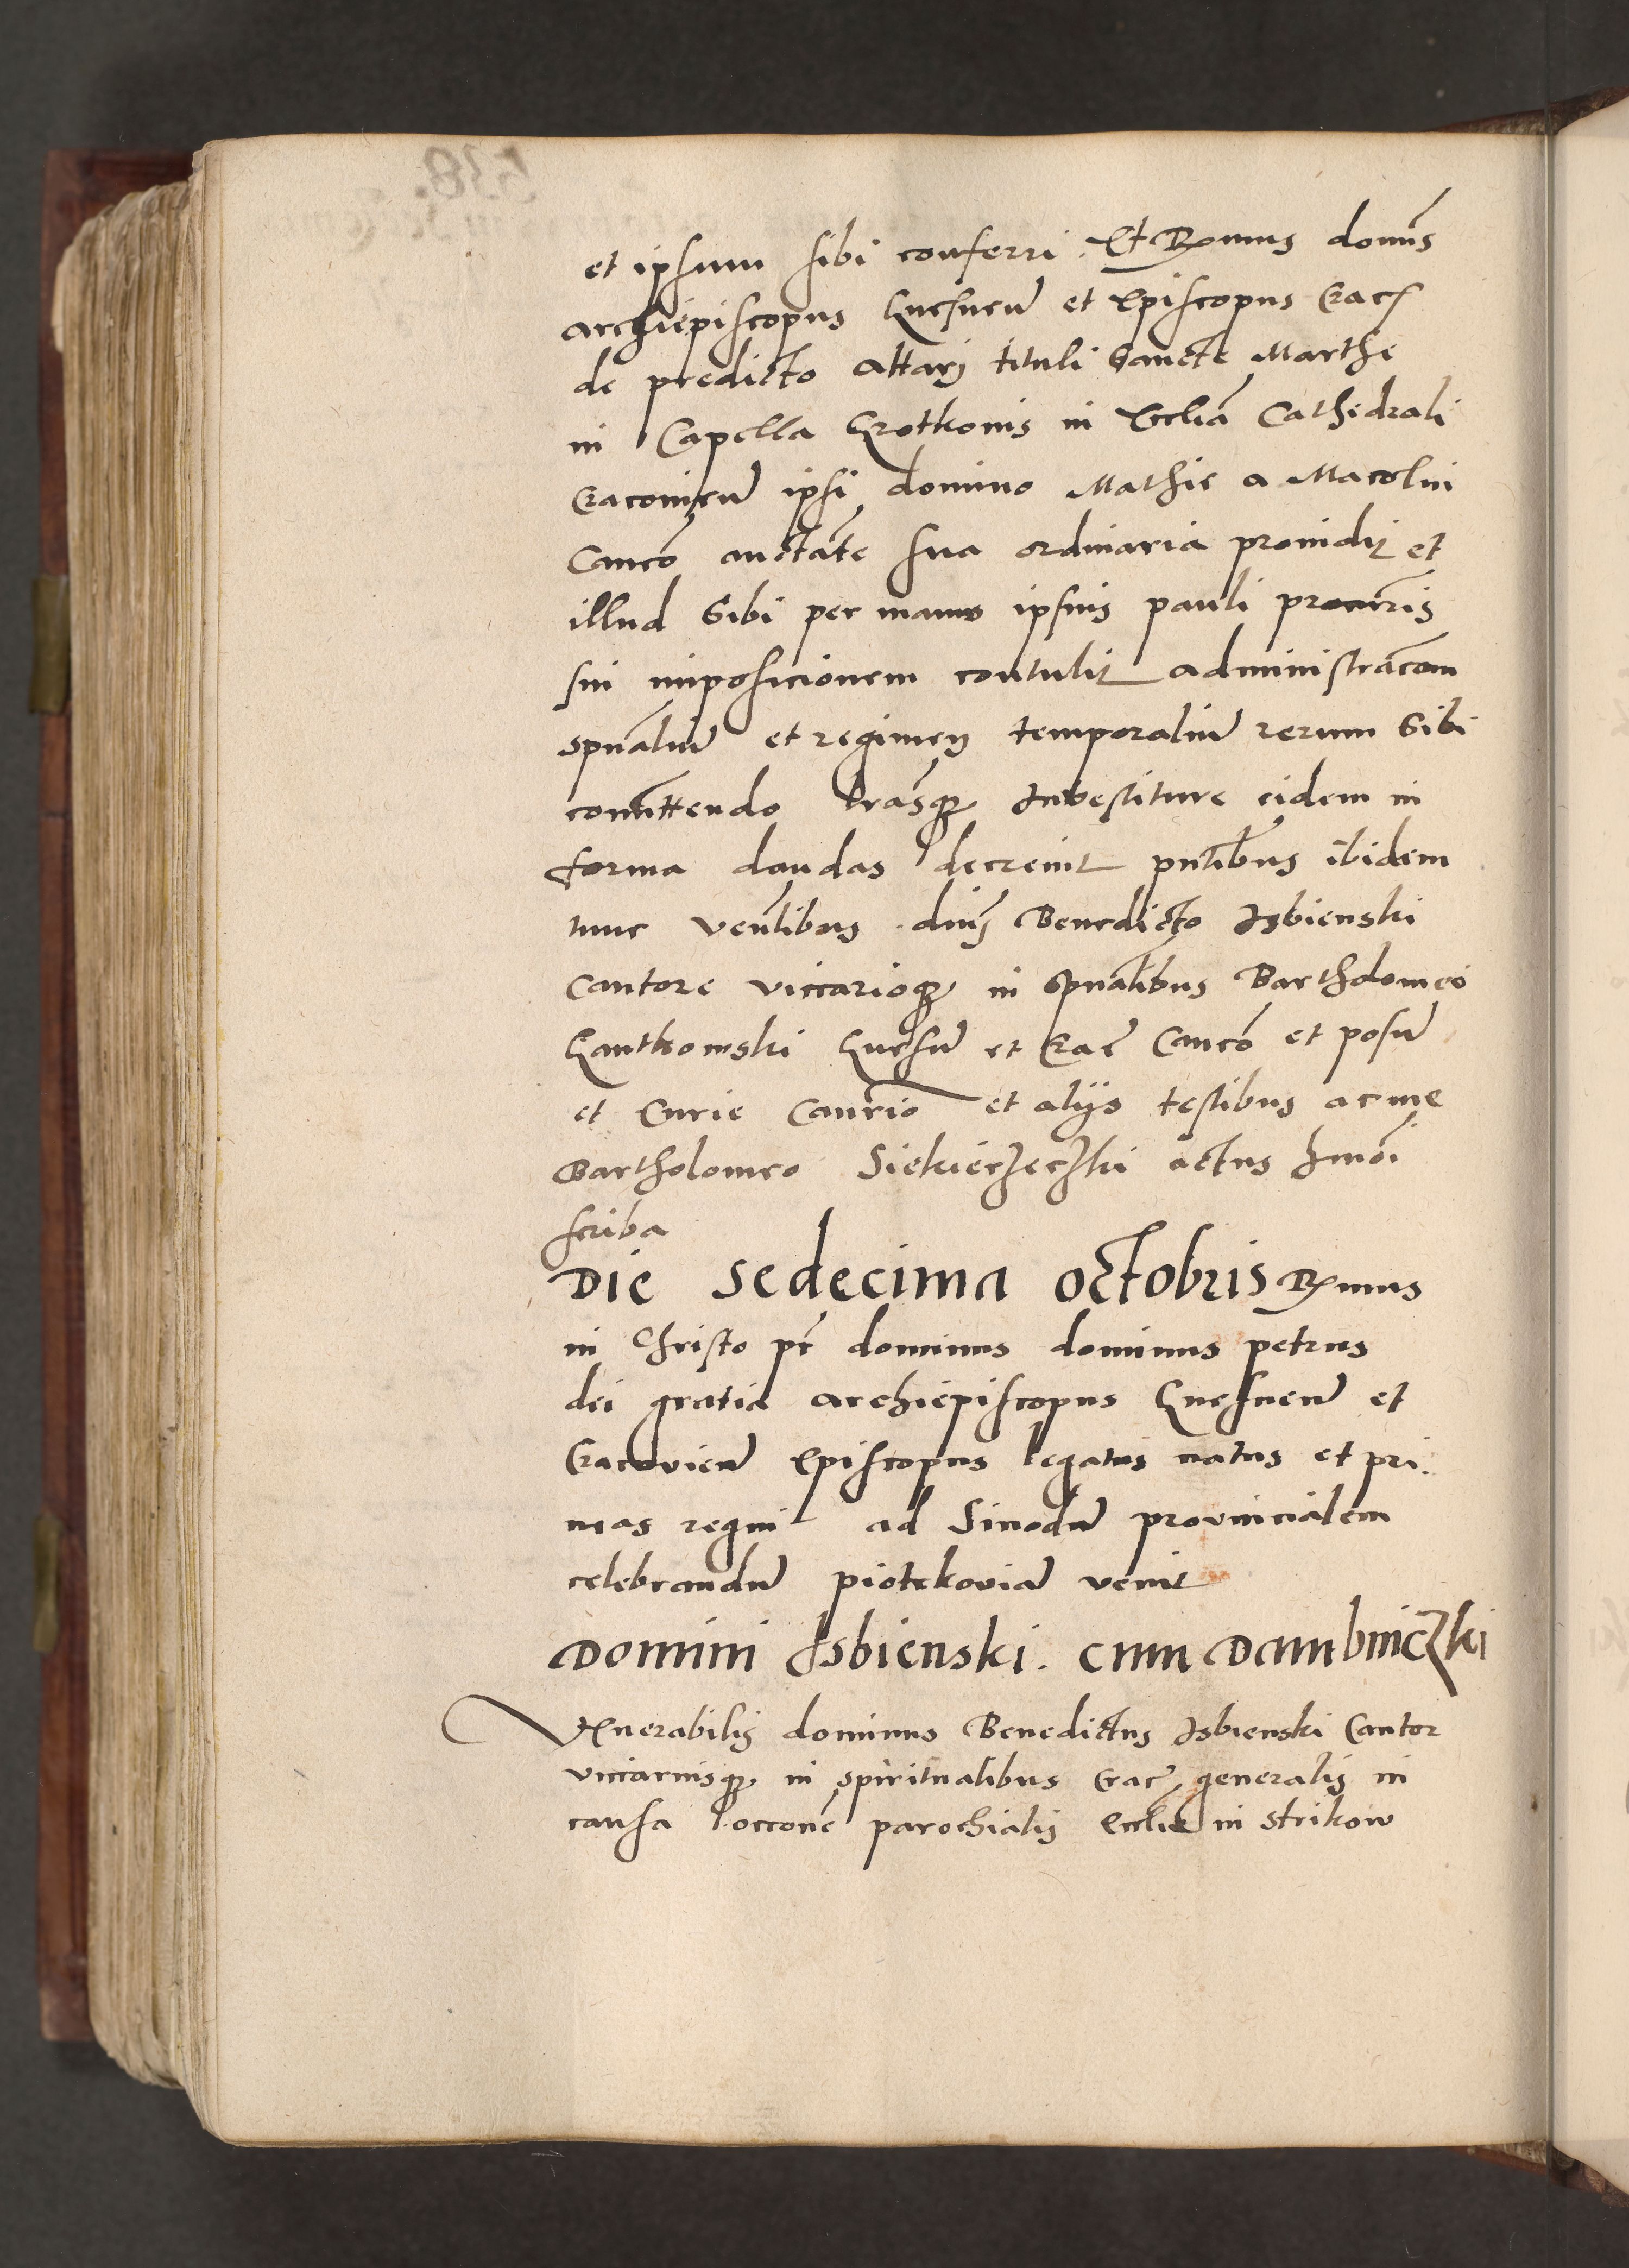 et ipsum sibi conferri. Et Rmus domns
archiepiscopus Gnesnen et Episcopus Crac
de predicto altarj tituli Sancte Marthe
in Capella Grotkonis in Ecclia Cathedrali
Cracouien ipsi domino Mathie a Macolin
Canco auctate sua ordinaria prouidit et
illud Sibi per manus ipsius pauli procuris
sui imposicionem contulit administracom
spualium et regimen temporalium rerum Sibi
committendo lrasq Investiture eidem in
forma dandas decreuit pntibus ibidem
tunc venlibus dnis Benedicto Isbienski
Cantore viccarioq in spualibus Bartholomeo
Gantkowski Gnesn et Crac Canco et posn
et Curie Canrio et alijs testibus ac me
Bartholomeo Siekierzeczki actus hmoi
scriba
Die Sedecima Octobris Rmus
in Christo pr dominus dominus petrus
dei gratia archiepiscopus Gnesnen et
Cracovien Episcopus legatus natus et pri
mas regni ad Sinodu provincialem
celebrandu piotrkoviam venit
Domini Isbienski. cum Dambniczki
Venerabilis dominus Benedictus Isbienski Cantor
viccariusq in spiritualibus Crac generalis in
causa parochialis Ecclie in Strikow